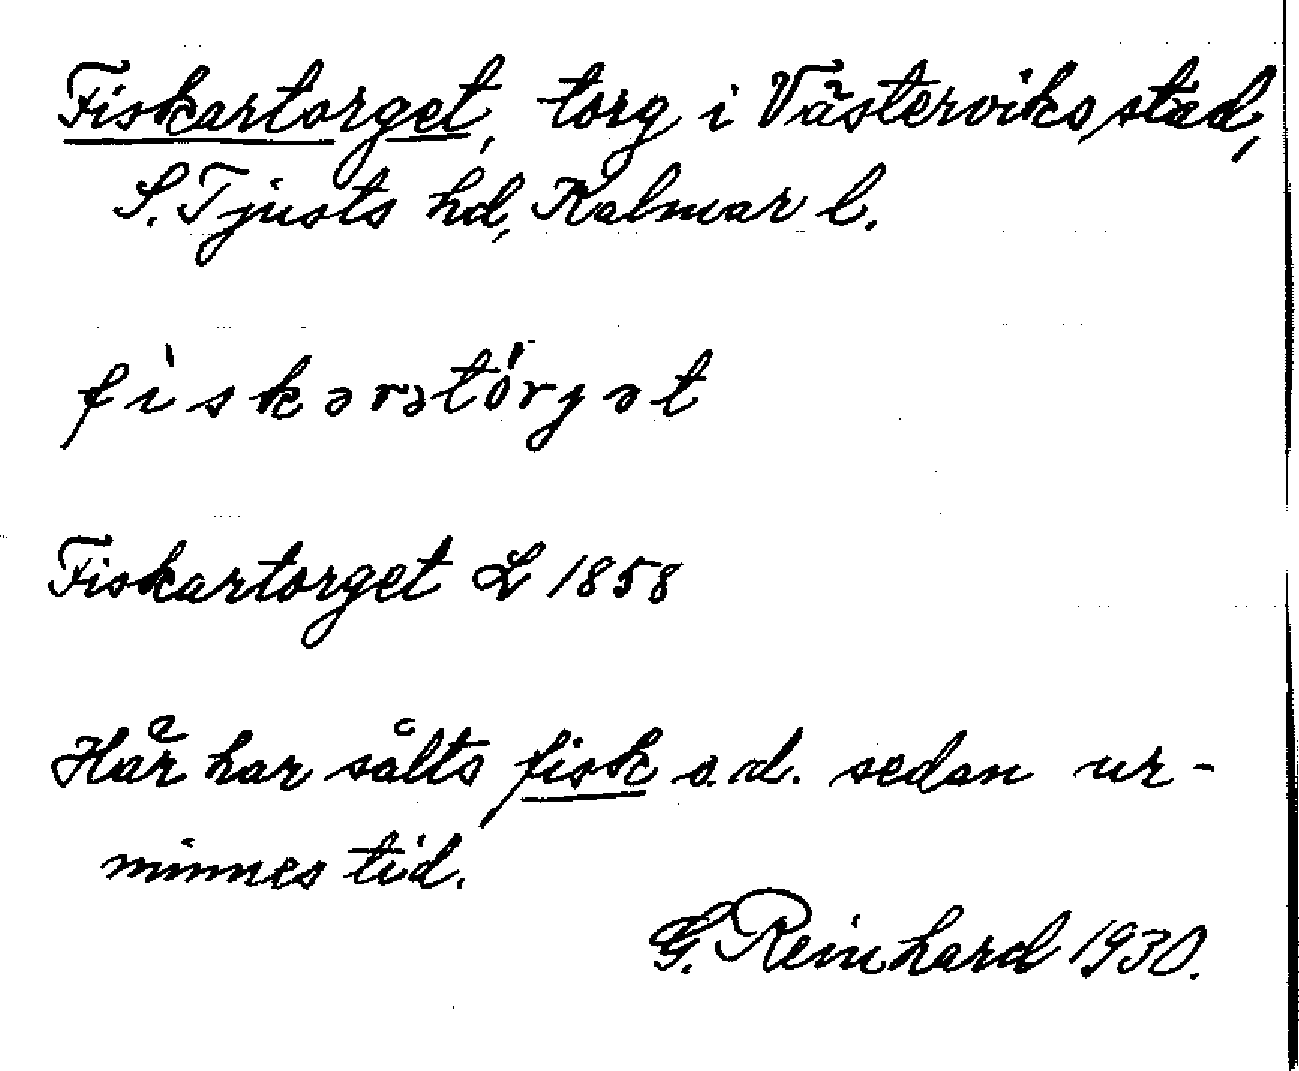 Fiskartorget, torg i Västerviks stad,
S. Tjusts hd, Kalmar l.
fìskərətórgət
Fiskartorget L 1858
Här har sålts fisk o.d. sedan ur-
minnes tid.
G. Reinhard 1930.